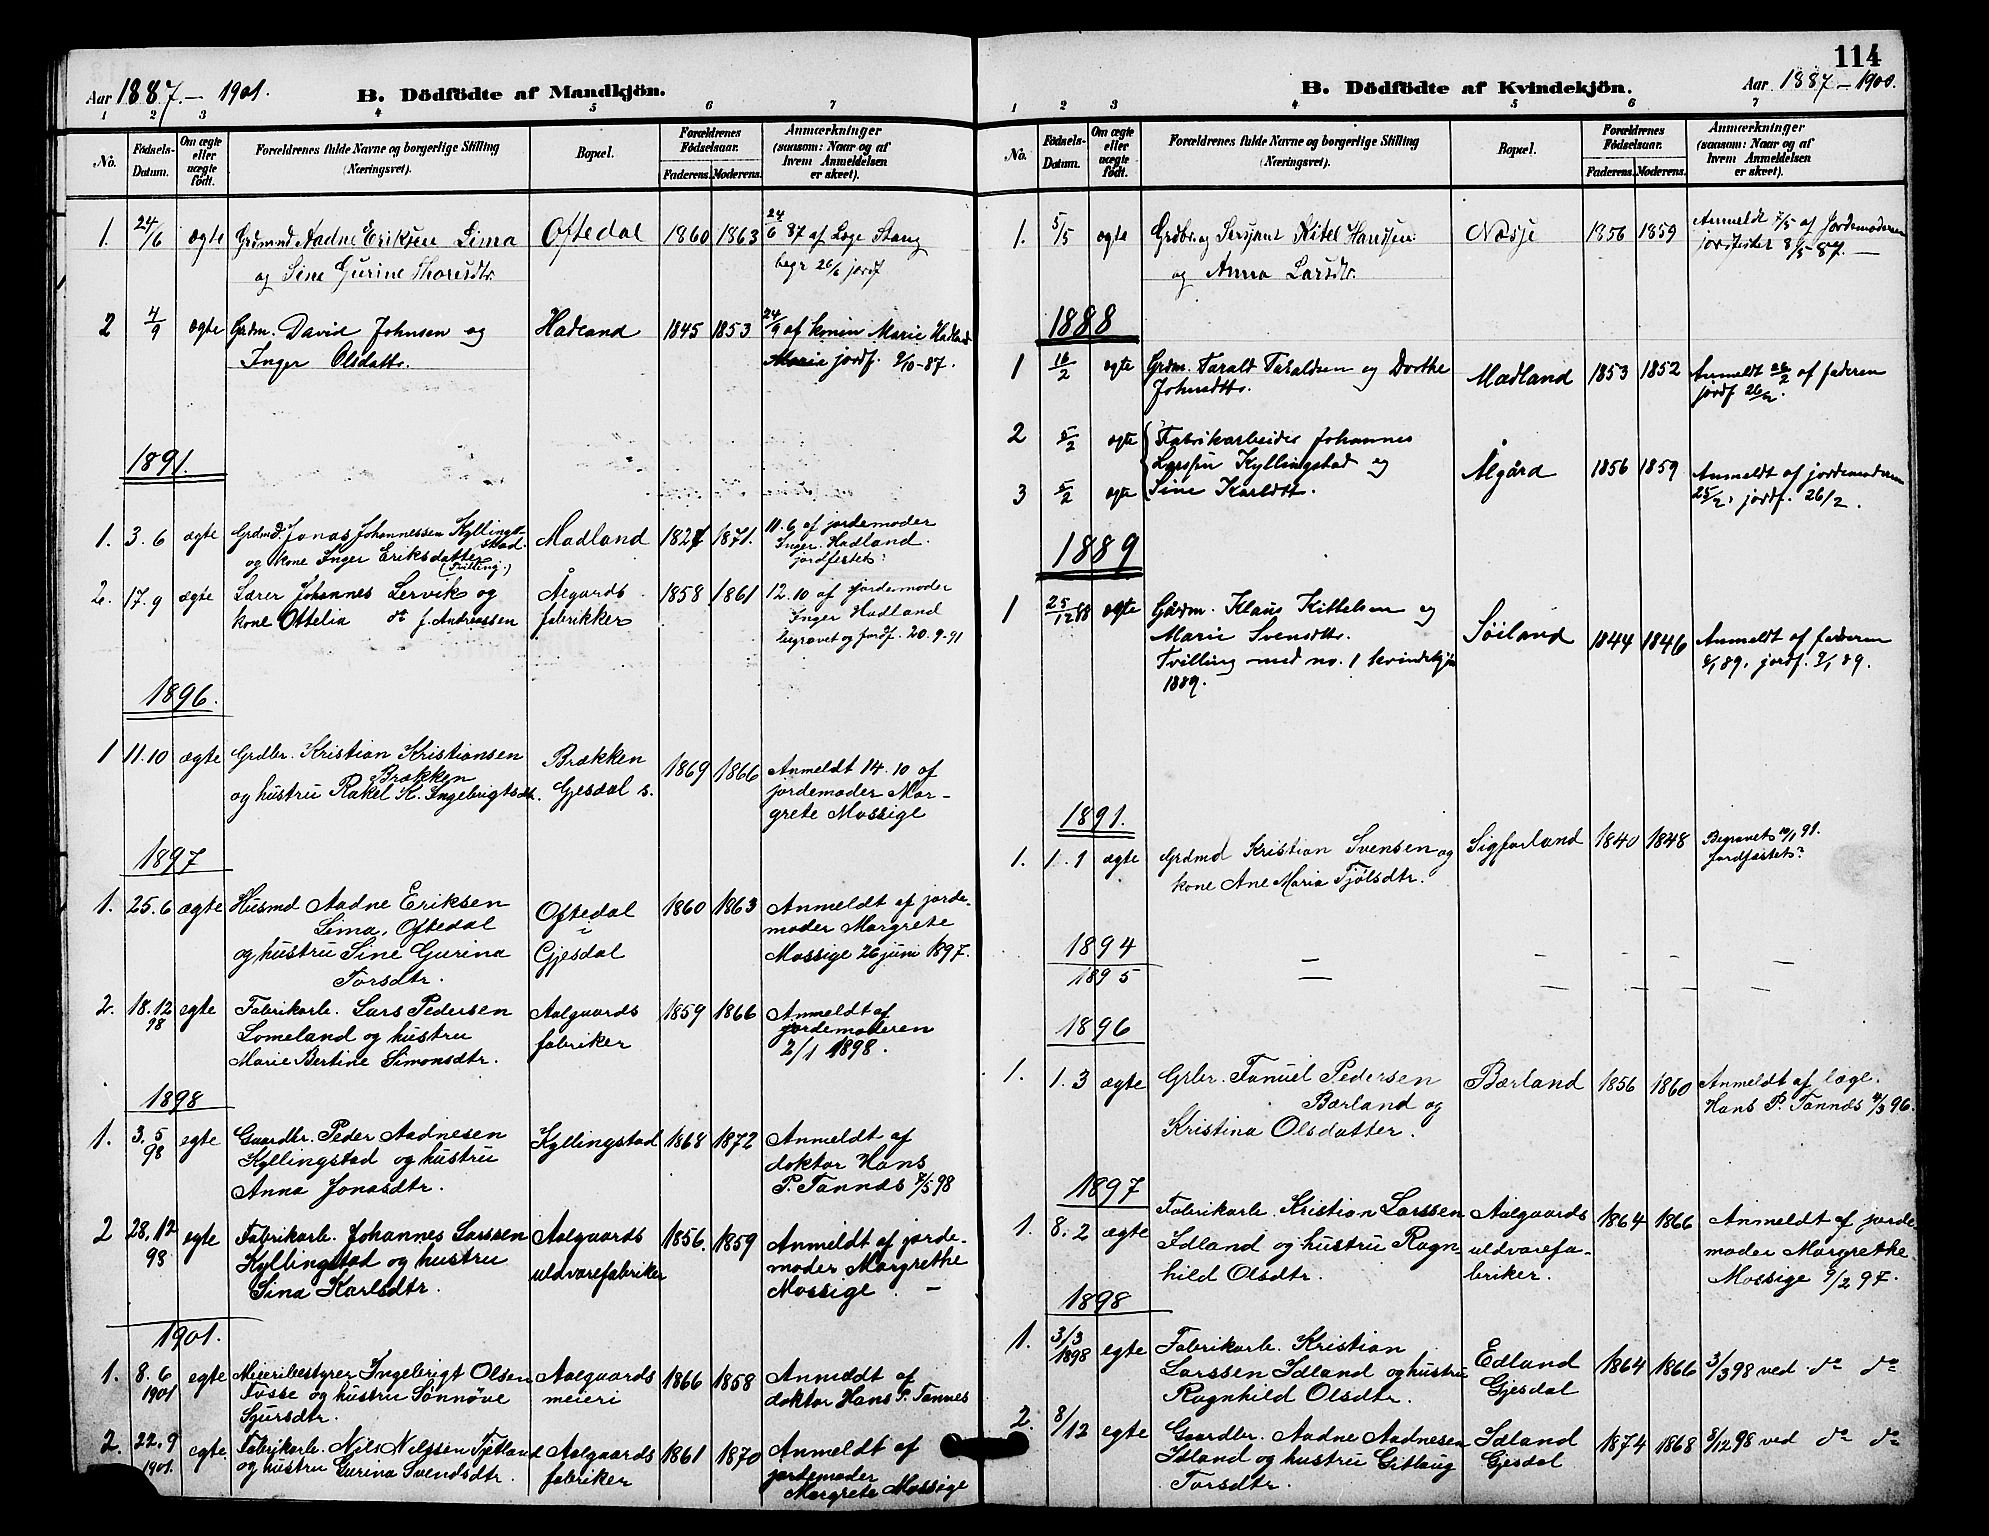 Aar 1887.- 1901. B. Dödfödte af Mandkjön.
1 2 3 4 5 6 7
No. Födsels-Datum. Om ægte eller uægte födt. Forældrenes fulde Navne og borgerlige Stilling (Næringsvei). Bopæl. Forældrenes Födselsaar. Faderens. Moderens. Anmærkninger (saasom: Naar og af hvem Anmeldelsen er skeet).
1. 24/6 ægte Grdmnd Aadne Eriksen Lima Oftedal 1860 1863 24/6 87 af
og Sine Gurine Thorsdtr. begr 26/6 jordf
2 4/9 ægte Grdm. David Johnsen og Hadland 1845 1853 24/9 af konen Marie Hadland
Inger Olsdattr. Marie jordf. 2/10-87.
1891.
1. 3.6 ægte Grdmd. Jonas Johannessen Kyllingstad Madland 1827 1871. 11.6 af jordemoder
og kone Inger Eriksdatter Inger Hadland.
(Tvilling.) jordfestet:
2. 17.9 ægte Lærer Johannes Lervik og Ålgårds 1858 1861 12.10 af jordemoder
kone Ottelia J. Andreassen fabrikker Inger Hadland
begravet og jordf. 20.9.91
1896.
1 11.10 ægte Grdbr. Kristian Kristiansen Brækken 1869 1866 Anmeldt 14.10 af
Brækken
og hustru Rakel K. Ingebrigtsdt. Gjesdal s. jordemoder Mar-
grete Mossige
1897
1. 25.6 ægte Husmd Aadne Eriksen Oftedal 1860 1863 Anmeldt af jorde-
Lima, Oftedal i moder Margrete
og hustru Sine Gurina Gjesdal Mossige 26 juni 1897.
Torsdtr.
2. 18.12 98 egte Fabrikarb. Lars Pedersen Aalgaards 1859 1866 Anmeldt af
Lomeland og hustru fabriker jordemoderen
Marie Bertine Simonsdtr. 2/1 1898.
1898
1. 3.5 98 egte Gaardbr. Peder Aadnesen Kyllingstad 1868 1872 Anmeldt af
Kyllingstad og hustru doktor Hans
Anna Jonasdtr. P. Tannæs 7/5 98
2 28.12 98 egte Fabrikarb. Johannes Larssen Aalgaards 1856. 1859 Anmeldt af jorde-
Kyllingstad og hustru uldvarefabriker moder Margrethe
Sina Karlsdtr. Mossige. —
1901.
1. 8.6 1901 egte Meieribestyrer Ingebrigt Olsen Aalgaards 1866 1858 Anmeldt af
Fosse og hustru Sønnöve meieri doktor Hans P. Tannes
Sjursdtr.
2. 22.9 1901. egte Fabrikarb. Nils Nilssen Tjetland Aalgaards 1861 1870 Anmeldt af
og hustru Gurina Svendsdtr. fabriker jordemoder
Margrete Mossige
114
B. Dödfödte af Kvindekjön. Aar 1887-1900.
1 2 3 4 5 6 7
No. Födsels-Datum. Om ægte eller uægte födt. Forældrenes fulde Navne og borgerlige Stilling (Næringsvei). Bopæl. Forældrenes Födselsaar. Faderens. Moderens. Anmærkninger (saasom: Naar og af hvem Anmeldelsen er skeet).
1. 5/5 egte Grdbr og Sersjant Kitel Hansen Næsje 1856 1859 Anmeldt 7/5 af Jordemoderen
og Anna Larsdtr. jordfestet 8/5 87. —
1888
1 16/2 egte Grdm. Tarald Taraldsen og Dorthe Madland 1853 1852 Anmeldt 26/2 af faderen
Johnsdttr. jordf 26/2.
2 5/2 egte Fabrikarbeider Johannes
Larssen Kyllingstad og Ålgård 1856 1859 Anmeldt af jordemoderen
3 5/2 egte Sine Karlsdtt. 25/2: jordf. 26/2.
1889
1 25/12 88 egte Gårdm. Klaus Kittelsen og Søiland 1844 1846 Anmeldt af faderen
Marie Svensdttr. 8/1 89, jordf. 9/1 89.
Tvilling med no. 1 kvindekjøn
1889.
1891.
1. 1.1 ægte Grdmd Kristian Svensen og Sigforland 1840 1848 Begravet 10/1 91.
kone Ane Maria Tjølsdtr. Jordfæstet?
1894 — — — —
1895 — — — —
1896
1. 1.3 ægte Grbr. Tanuel Pedersen Bærland 1856 1860 Anmeldt af læge.
Bærland og Hans P. Tannæs 4/3 96.
Kristina Olsdatter.
1897
1. 8.2 ægte Fabrikarb. Kristian Larssen Aalgaards 1864 1866 Anmeldt af jorde
Idland og hustru Ragn- uldvarefa- moder Margrethe
hild Olsdtr. briker. Mossige 9/2 97.
1898
1. 3/3 1898 egte Fabrikarb. Kristian Edland 1864 1866 3/3 98 ved do do
Larssen Idland og hustru Gjesdal
Ragnhild Olsdtr.
2. 8/12 egte Gaardbr. Aadne Aadnesen Idland 1874 1868 8/12 98 ved do do
Idland og hustru Gitlaug Gjesdal
Torsdtr.